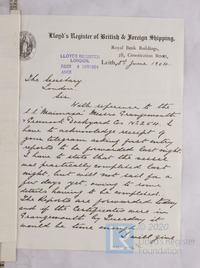 Lloyd's Register of British & Foreign Shipping.
Royal Bank Buildings,
28, Constitution Street,
Leith, June 1904
LLOYD'S REGISTER
LONDON.
The Secretary
London
Sir
With reference to the
s.s. Messrs Grangemouth
& Greenock Dockyard Co. I
have to acknowledge receipt of
your telegram asking first entry
reports to be forwarded last night
I have to state that the vessel
was practically completed last
night, but will not sail for a
few days yet, owing to some
details having to be completed.
The Reports are forwarded today
and if the Certificates were in
Grangemouth by Thursday it
would be time enough.
I will give
© 2020
Lloyd's Register
Foundation